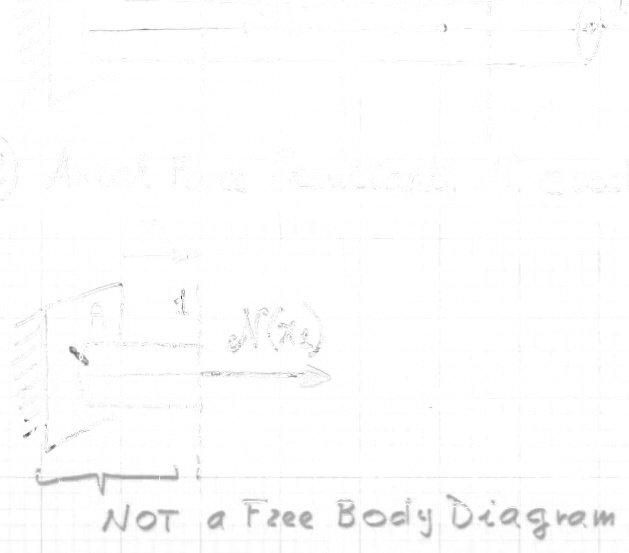 Axial Force Resultant,
A
1
N(x₁)
NOT a Free Body Diagram